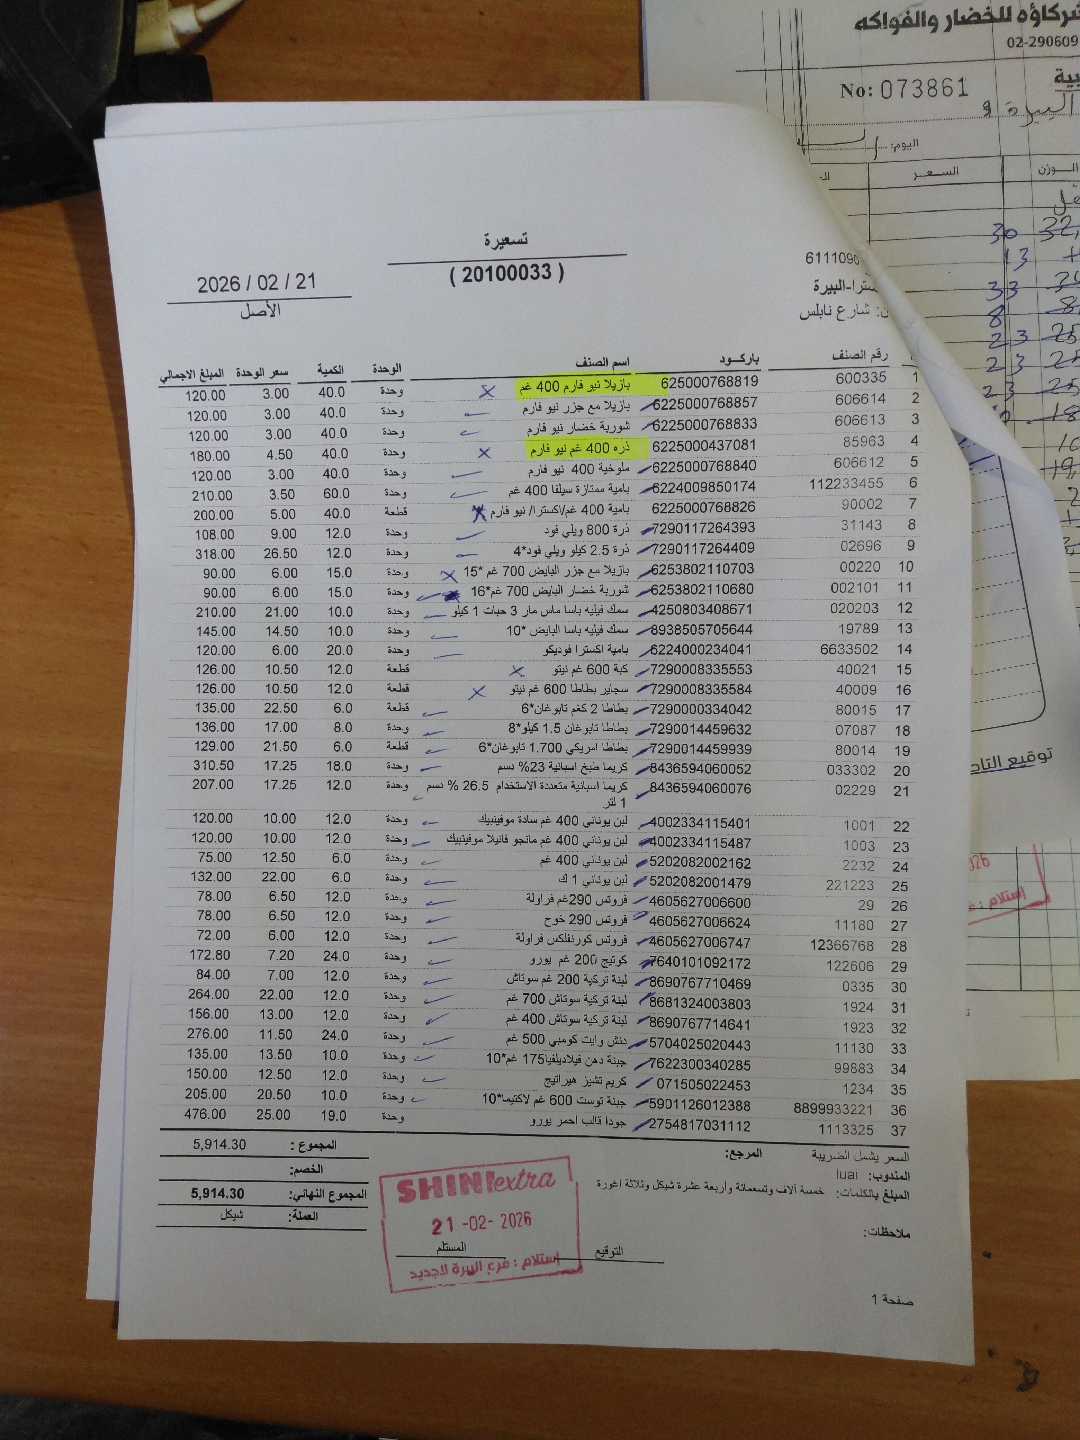 تسعيرة
( 20100033 )
2026 / 02 / 21
الأصل
شارع نابلس
رقم الصنف باركود اسم الصنف الوحدة الكمية سعر الوحدة المبلغ الاجمالي
1 600335 625000768819 بازيلا نيو فارم 400 غم وحدة 40.0 3.00 120.00
2 606614 6225000768857 بازيلا مع جزر نيو فارم وحدة 40.0 3.00 120.00
3 606613 6225000768833 شوربة خضار نيو فارم وحدة 40.0 3.00 120.00
4 85963 6225000437081 ذره 400 غم نيو فارم وحدة 40.0 4.50 180.00
5 606612 6225000768840 ملوخية 400 نيو فارم وحدة 40.0 3.00 120.00
6 112233455 6224009850174 بامية ممتازة سيلفا 400 غم وحدة 60.0 3.50 210.00
7 90002 6225000768826 بامية 400 غم/اكسترا/ نيو فارم قطعة 40.0 5.00 200.00
8 31143 7290117264393 ذرة 800 ويلي فود وحدة 12.0 9.00 108.00
9 02696 7290117264409 ذرة 2.5 كيلو ويلي فود*4 وحدة 12.0 26.50 318.00
10 00220 6253802110703 بازيلا مع جزر البايض 700 غم *15 وحدة 15.0 6.00 90.00
11 002101 6253802110680 شوربة خضار البايض 700 غم*16 وحدة 15.0 6.00 90.00
12 020203 4250803408671 سمك فيليه باسا ماس مار 3 حبات 1 كيلو وحدة 10.0 21.00 210.00
13 19789 8938505705644 سمك فيليه باسا البايض *10 وحدة 10.0 14.50 145.00
14 6633502 6224000234041 بامية اكسترا فوديكو وحدة 20.0 6.00 120.00
15 40021 7290008335553 كبة 600 غم نيتو قطعة 12.0 10.50 126.00
16 40009 7290008335584 سجاير بطاطا 600 غم نيتو قطعة 12.0 10.50 126.00
17 80015 7290000334042 بطاطا 2 كغم تابوغان*6 قطعة 6.0 22.50 135.00
18 07087 7290014459632 بطاطا تابوغان 1.5 كيلو*8 وحدة 8.0 17.00 136.00
19 80014 7290014459939 بطاطا امريكي 1.700 تابوغان*6 قطعة 6.0 21.50 129.00
20 033302 8436594060052 كريما طبخ اسبانية 23% دسم وحدة 18.0 17.25 310.50
21 02229 8436594060076 كريما اسبانية متعددة الاستخدام 26.5 % دسم وحدة 12.0 17.25 207.00
1 لتر
22 1001 4002334115401 لبن يوناني 400 غم سادة موفينبيك وحدة 12.0 10.00 120.00
23 1003 4002334115487 لبن يوناني 400 غم مانجو فانيلا موفينبيك وحدة 12.0 10.00 120.00
24 2232 5202082002162 لبن يوناني 400 غم وحدة 6.0 12.50 75.00
25 221223 5202082001479 لبن يوناني 1 ك وحدة 6.0 22.00 132.00
26 29 4605627006600 فروتس 290غم فراولة وحدة 12.0 6.50 78.00
27 11180 4605627006624 فروتس 290 خوخ وحدة 12.0 6.50 78.00
28 12366768 4605627006747 فروتس كورنفلكس فراولة وحدة 12.0 6.00 72.00
29 122606 7640101092172 كوتيج 200 غم يورو وحدة 24.0 7.20 172.80
30 0335 8690767710469 لبنة تركية 200 غم سوتاش وحدة 12.0 7.00 84.00
31 1924 8681324003803 لبنة تركية سوتاش 700 غم وحدة 12.0 22.00 264.00
32 1923 8690767714641 لبنة تركية سوتاش 400 غم وحدة 12.0 13.00 156.00
33 11130 5704025020443 دنش وايت كومبي 500 غم وحدة 24.0 11.50 276.00
34 99883 7622300340285 جبنة دهن فيلادلفيا175 غم*10 وحدة 10.0 13.50 135.00
35 1234 071505022453 كريم تشيز هيراتيج وحدة 12.0 12.50 150.00
36 8899933221 5901126012388 جبنة توست 600 غم لاكتيما*10 وحدة 10.0 20.50 205.00
37 1113325 2754817031112 جودا قالب احمر يورو وحدة 19.0 25.00 476.00
السعر يشمل الضريبة المرجع: المجموع : 5,914.30
المندوب: luai الخصم:
المبلغ بالكلمات: خمسة آلاف وتسعمائة وأربعة عشرة شيكل وثلاثة اغورة المجموع النهائي: 5,914.30
العملة: شيكل
ملاحظات:
SHINI extra
21 -02- 2026
المستلم التوقيع
إستلام : فرع البيرة الجديد
صفحة 1
شركاؤه للخضار والفواكه
02-290609
No: 073861
البيرة
اليوم:
السعر الوزن
30
13
33
8
23
23
23